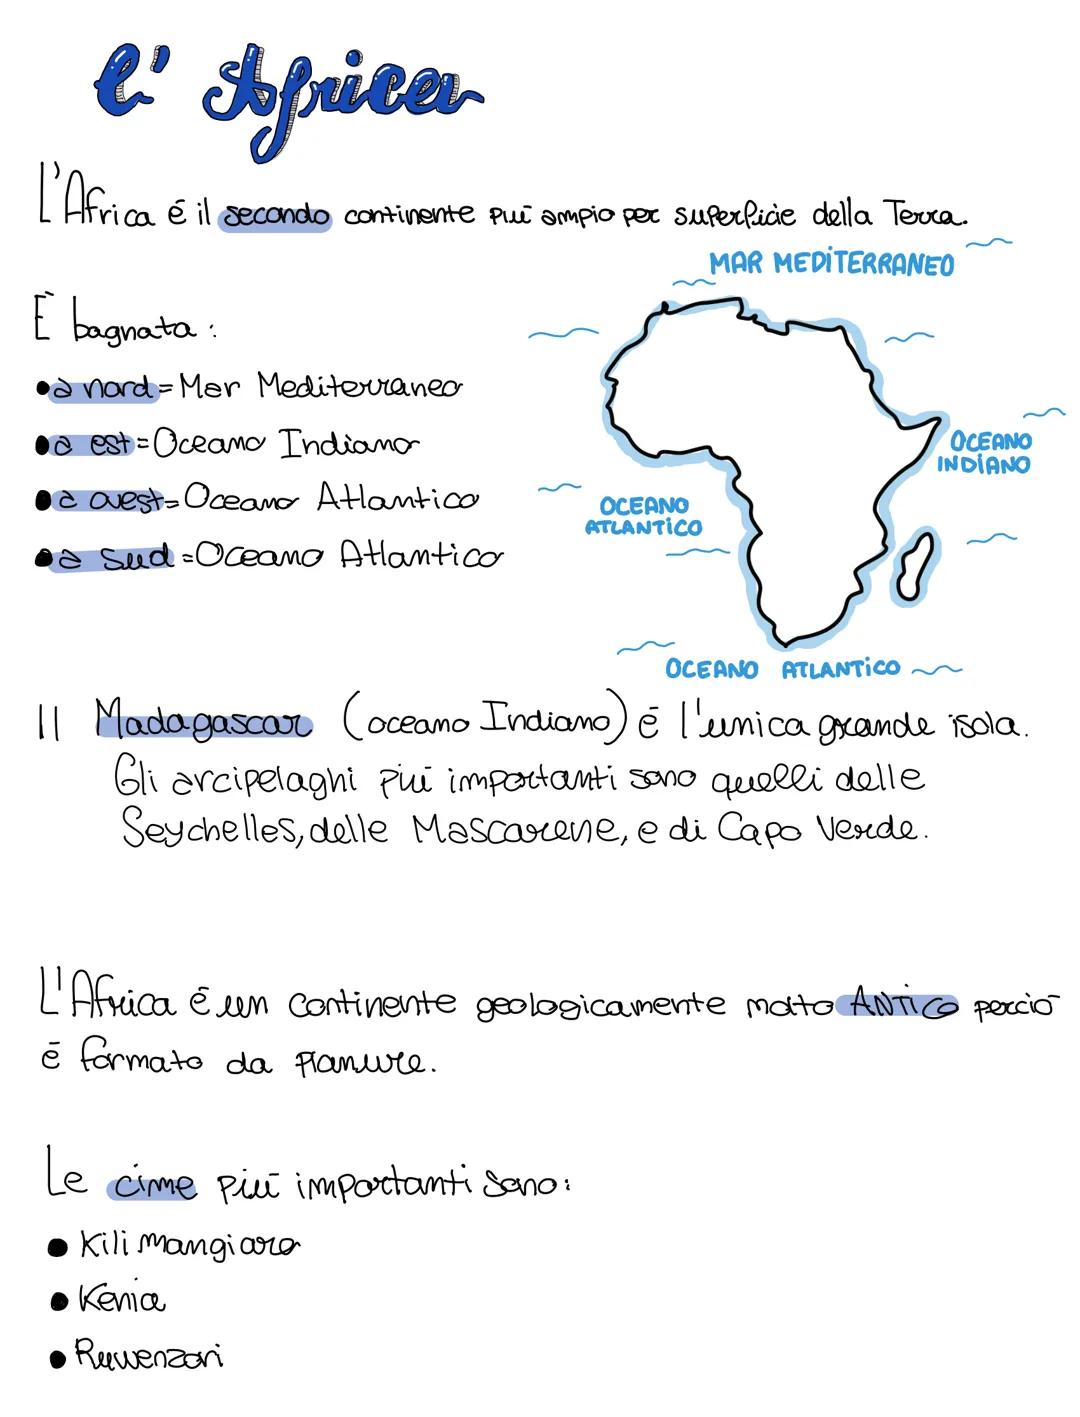 l' Africa
L'Africa é il secondo continente più ampio per superficie della Terra.
MAR MEDITERRANEO
È bagnata:
•a nord=Mar Mediterraneo
•a est=Oceano Indiano
•a ovest=Oceano Atlantico
•a sud=Oceano Atlantico
OCEANO
INDIANO
OCEANO
ATLANTICO
OCEANO ATLANTICO
Il Madagascar (oceano Indiano) é l'unica grande isola.
Gli arcipelaghi più importanti sono quelli delle
Seychelles, delle Mascarene, e di Capo Verde.
L'Africa é un continente geologicamente molto ANTICO perciò
é formato da pianure.
Le cime più importanti sono:
• Kilimangiaro
• Kenia
• Ruwenzori